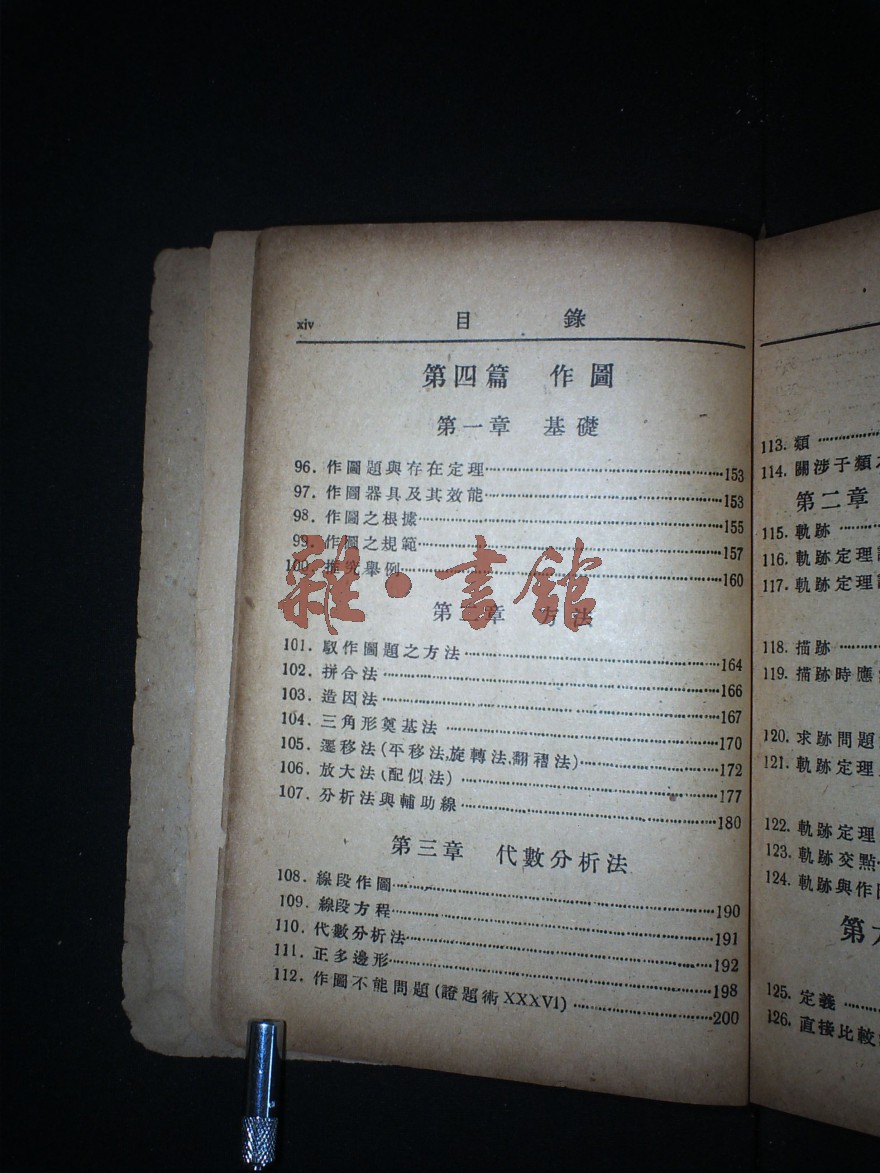 xiv 目 錄
第四篇 作圖
第一章 基礎
96. 作圖題與存在定理 153
97. 作圖器具及其效能 153
98. 作圖之根據 155
99. 作圖之規範 157
100. 推究舉例 160
雜·書館
第二章 方法
101. 馭作圖題之方法 164
102. 拼合法 166
103. 造因法 167
104. 三角形奠基法 170
105. 遷移法(平移法,旋轉法,翻褶法) 172
106. 放大法(配似法) 177
107. 分析法與輔助線 180
第三章 代數分析法
108. 線段作圖 190
109. 線段方程 191
110. 代數分析法 192
111. 正多邊形 198
112. 作圖不能問題(證題術XXXVI) 200
113. 類
114. 關涉于類
第二章
115. 軌跡
116. 軌跡定理
117. 軌跡定理
118. 描跡
119. 描跡時應
120. 求跡問題
121. 軌跡定理
122. 軌跡定理
123. 軌跡交點
124. 軌跡與作
第
125. 定義
126. 直接比較